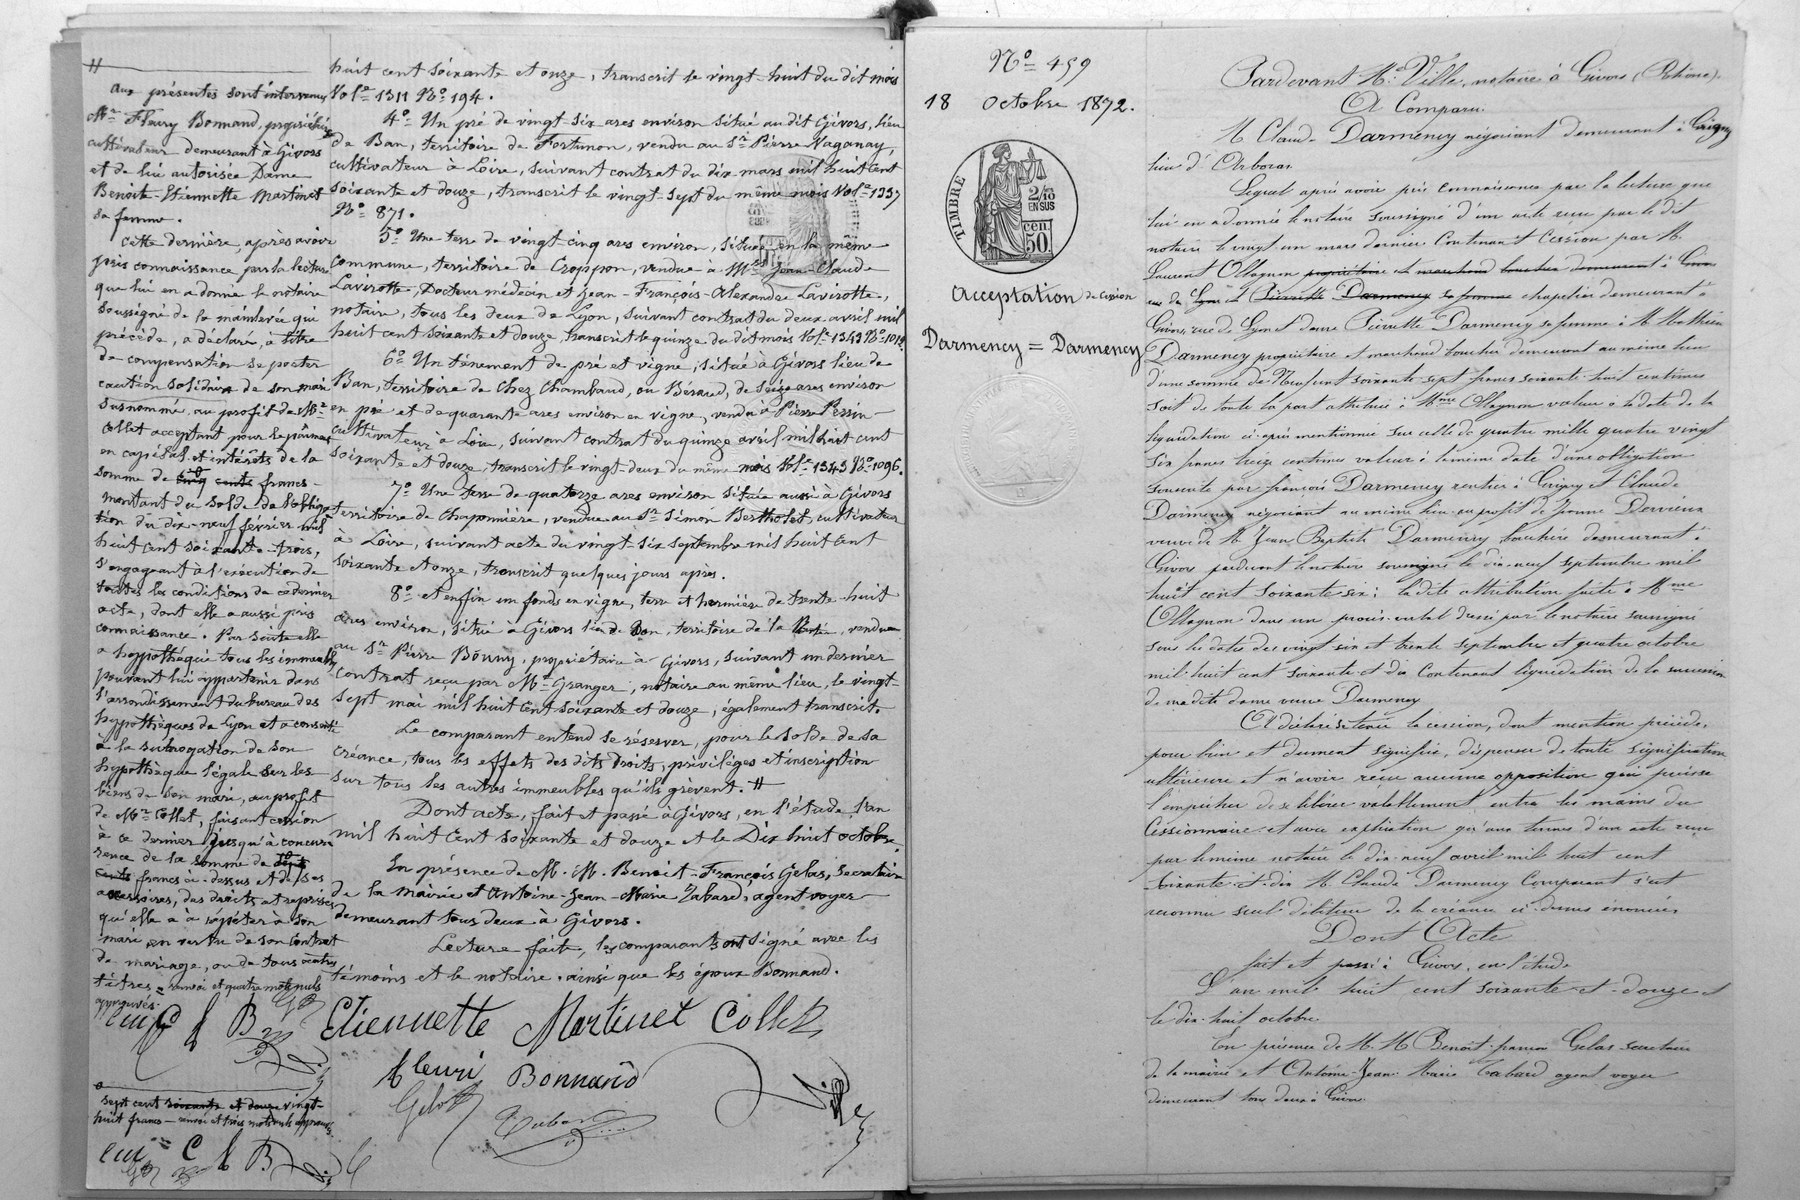 H
Aux présentes sont intervenus
Mr Fleury Bonnand, propriétaire
cultivateur demeurant à Givors
et de lui autorisée Dame
Benoite-Etiennette Martinet
sa femme.
Cette dernière, après avoir
pris connaissance par la lecture
que lui en a donnée le notaire
soussigné de la mainlevée qui
précède, a déclaré, à titre
de compensation se porter
caution solidaire de son mari
susnommé, au profit de Mr
Collet acceptant pour le paiement
en capital et intérêts de la
somme de cinq cents francs
montant du solde de l'obliga-
tion du dix-neuf février mil
huit cent soixante-trois,
s'engageant à l'exécution de
toutes les conditions de ce dernier
acte, dont elle a aussi pris
connaissance. Par suite elle
a hypothéqué tous les immeubles
pouvant lui appartenir dans
l'arrondissement du bureau des
hypothèques de Lyon et a consenti
à la subrogation de son
hypothèque légale sur les
biens de son mari, au profit
de Mr Collet, faisant cession
à ce dernier jusqu'à concur-
rence de la somme de
cents francs ci-dessus et de ses
accessoires, des droits et reprises
qu'elle a à répéter à son
mari en vertu de son contrat
de mariage, ou de tous autres
titres = renvoi et quatre mots nuls
approuvés.
sept cent soixante et douze vingt-
huit francs — renvoi et trois mots nuls approuvés
huit cent soixante et onze, transcrit le vingt-huit du dit mois
Vol. 1311 No 194.
4o Un pré de vingt-six ares environ situé au dit Givors, lieu
de Ban, territoire de Fortunon, vendu au Sr Pierre Naganay,
cultivateur à Loire, suivant contrat du dix mars mil huit cent
soixante et douze, transcrit le vingt-sept du même mois Vol. 1337
No 871.
5o Une terre de vingt-cinq ares environ, située en la même
commune, territoire de Croppon, vendue à MMrs Jean-Claude
Lavirotte, Docteur médecin et Jean-François-Alexandre Lavirotte,
notaire, tous les deux de Lyon, suivant contrat du deux avril mil
huit cent soixante et douze, transcrit le quinze du dit mois Vol. 1343 No 1012.
6o Un ténement de pré et vigne, situé à Givors lieu de
Ban, territoire de Chez Chambaud, ou Béraud, de seize ares environ
en pré et de quarante ares environ en vigne, vendu à Pierre Perrin
cultivateur à Loire, suivant contrat du quinze avril mil huit cent
soixante et douze, transcrit le vingt-deux du même mois Vol. 1343 No 1096.
7o Une terre de quatorze ares environ située aussi à Givors
territoire de Chaponnière, vendue au Sr Simon Bertholet, cultivateur
à Loire, suivant acte du vingt-six septembre mil huit cent
soixante et onze, transcrit quelques jours après.
8o et enfin un fonds en vigne, terre et hermière de trente-huit
ares environ, situé à Givors lieu de Ban, territoire de la, vendue
au Sr Pierre Bonny, propriétaire à Givors, suivant un dernier
contrat reçu par Mr Granger, notaire au même lieu, le vingt-
sept mai mil huit cent soixante et douze, également transcrit.
Le comparant entend se réserver, pour le solde de sa
créance, tous les effets des dits droits, privilèges et inscription
sur tous les autres immeubles qu'ils grèvent. H
Dont acte, fait et passé à Givors, en l'étude, l'an
mil huit cent soixante et douze et le Dix huit octobre.
En présence de M. M. Benoit-François Gelas, Secrétaire
de la mairie et Antoine-Jean-Marie Tabard, agent voyer
demeurant tous deux à Givors.
Lecture faite, les comparants ont signé avec les
témoins et le notaire, ainsi que les époux Bonnand.
Etiennette Martinet Collet
fleuri Bonnand
Gelas Tabard
No 459
18 octobre 1872.
TIMBRE
2/10
EN SUS
cen.
50.
Acceptation de cession
Darmency = Darmency
Pardevant Me Ville, notaire à Givors (Rhône).
A Comparu
M Claude Darmency négociant demeurant à Grigny
lieu d'Arboras
Lequel après avoir pris connaissance par la lecture que
lui en a donnée le notaire soussigné d'un acte reçu par le dit
notaire le vingt un mars dernier Contenant Cession par M.
Laurent Ollagnon propriétaire et marchand boucher demeurant à Givors
rue de Lyon et Pierrette Darmency sa femme chapelier demeurant à
Givors, rue de Lyon et dame Pierrette Darmency sa femme à M Mathieu
Darmency propriétaire et marchand boucher demeurant au même lieu
d'une somme de Neuf cent soixante-sept francs soixante huit centimes
soit de toute la part attribuée à Mme Ollagnon valeur à la date de la
liquidation ci-après mentionnée sur celle de quatre mille quatre vingt
six francs treize centimes valeur à la même date d'une obligation
souscrite par françois Darmency rentier à Grigny et Claude
Darmency négociant au même lieu au profit de Jeanne Dervieux
veuve de M Jean Baptiste Darmency bouchère demeurant à
Givors pardevant le notaire soussigné le dix-neuf septembre mil
huit cent soixante-six; la dite attribution faite à Mme
Ollagnon dans un procès-verbal dressé par le notaire soussigné
sous les dates des vingt-six et trente septembre et quatre octobre
mil huit cent soixante et dix Contenant liquidation de la succession
de ma dite dame veuve Darmency
A déclaré se tenir la cession, dont mention précède,
pour bien et dument signifiée, dispenser de toute signification
ultérieure et n'avoir reçu aucune opposition qui puisse
l'empêcher de se libérer valablement entre les mains du
Cessionnaire et avec explication qu'aux termes d'un acte reçu
par le même notaire le dix-neuf avril mil huit cent
soixante-et-dix M Claude Darmency Comparant s'est
reconnu seul débiteur de la créance ci-dessus énoncée
Dont Acte
fait et passé à Givors, en l'étude
L'an mil huit cent soixante-et-douze et
le dix-huit octobre
En présence de M. M Benoit-françois Gelas secrétaire
de la mairie et Antoine-Jean-Marie Tabard agent voyer
demeurant tous deux à Givors